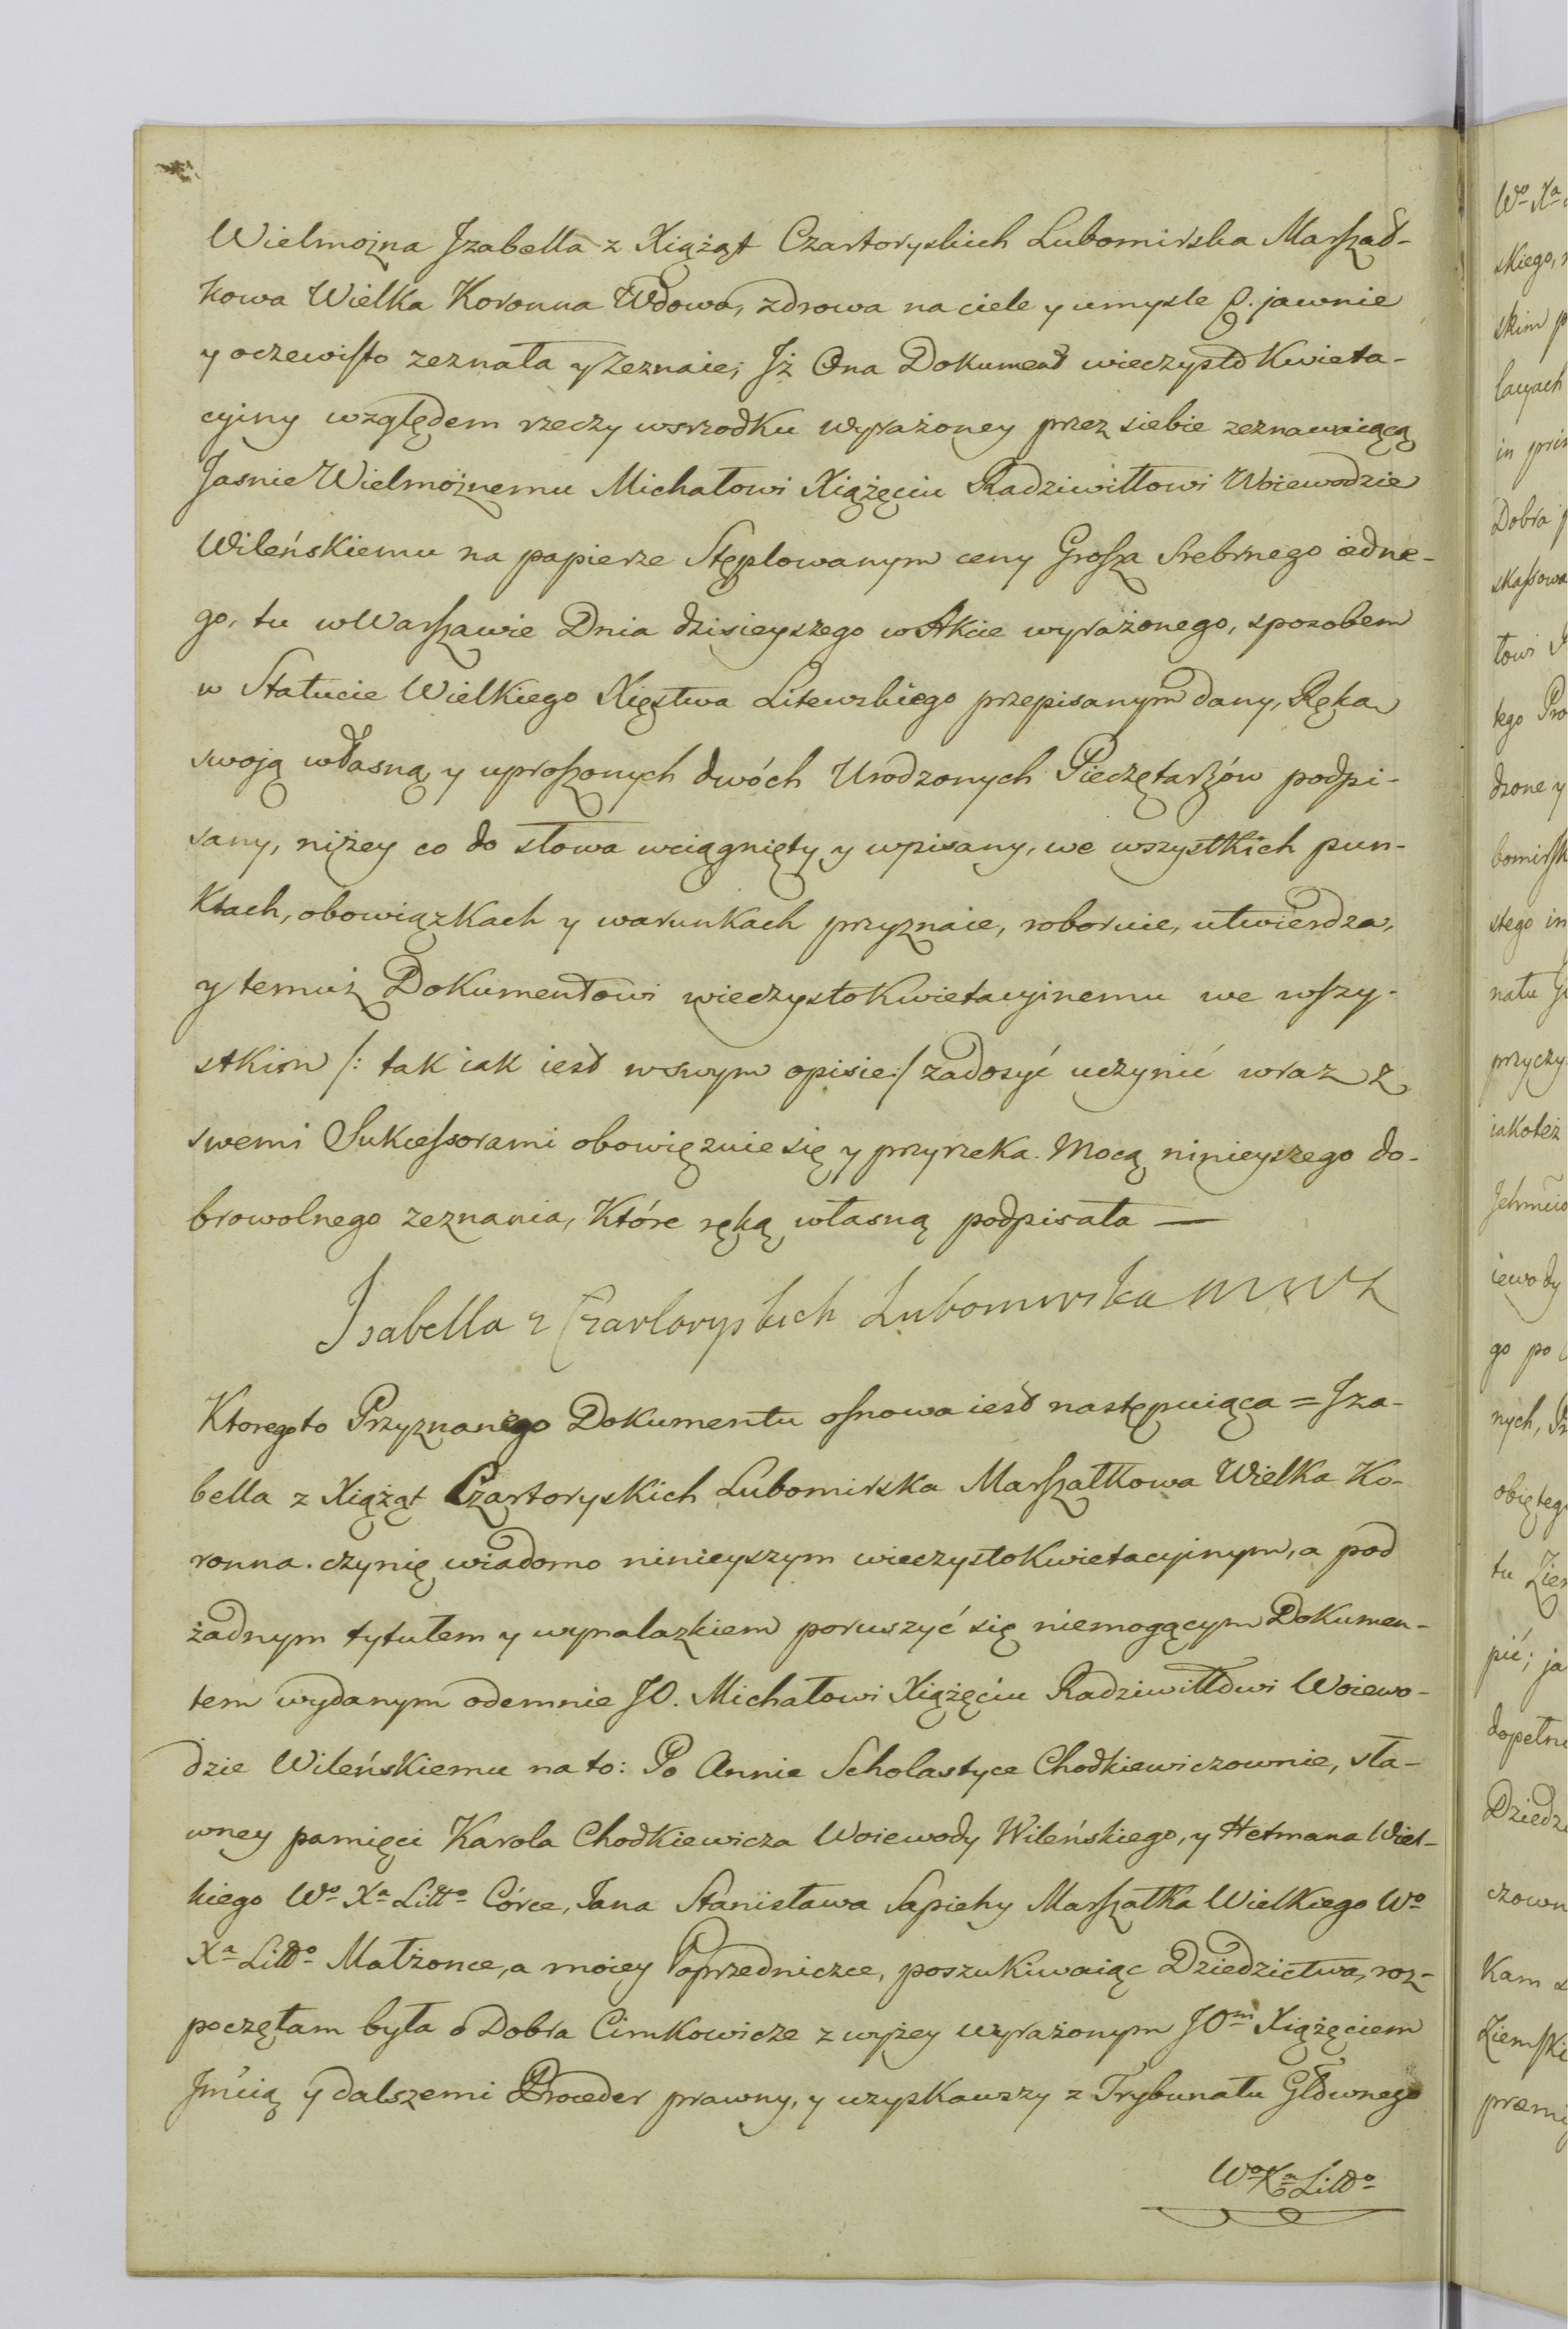 Wielmożna Jzabella z Xiążąt Czartoryskich Lubomirska Marszał-
kowa Wielka Koronna Wdowa, zdrowa na ciele y umysle p. jawnie
y oczewisto zeznała y zeznaie; Jż Ona Dokument wieczysto Kwieta-
cyiny względem rzeczy wsrzodku wyrażoney przez siebie zeznawaiącą
Jasnie Wielmożnemu Michałowi Xiążęciu Radziwiłłowi Woiewodzie
Wileńskiemu na papierze Stęplowanym ceny Grosza Srebrnego iedne-
go, tu w Warszawie Dnia dzisieyszego w Akcie wyrażonego, sposobem
w Statucie Wielkiego Xięstwa Litewskiego przepisanym dany, Ręką
swoją własną y uproszonych dwóch Urodzonych Pieczętarzów podpi-
sany, niżey co do słowa wciągnięty y wpisany, we wszystkich pun-
ktach, obowiązkach y warunkach przyznaie, roboruie, utwierdza,
y temuż Dokumentowi wieczysto Kwietacyinemu we wszy-
stkim /: tak iak iest w swym opisie :/ zadosyć uczynić wraz z
swemi Sukcessorami obowięzuie się y przyrzeka. Mocą ninieyszego do-
browolnego zeznania, Które ręką własną podpisała —
Isabella z Czartoryskich Lubomirska MWK
Ktorego to Przyznanego Dokumentu osnowa iest następuiąca = Jza-
bella z Xiążąt Czartoryskich Lubomirska Marszałkowa Wielka Ko-
ronna. czynię wiadomo ninieyszym wieczysto Kwietacyinym, a pod
żadnym tytułem y wynalazkiem poruszyć się niemogącym Dokumen-
tem wydanym odemnie JO. Michałowi Xiążęciu Radziwiłłowi Woiewo-
dzie Wileńskiemu na to: Po Annie Scholastyce Chodkiewiczownie, sła-
wney pamięci Karola Chodkiewicza Woiewody Wileńskiego, y Hetmana Wiel-
kiego Wo Xa Litto Córce, Jana Stanisława Sapiehy Marszałka Wielkiego Wo
Xa Litto Małżonce, a moiey Poprzedniczce, poszukiwaiąc Dziedzictwa, roz-
poczęłam była o Dobra Cimkowicze z wyżey wyrażonym JOm Xiążęciem
Jmcią y dalszemi Proceder prawny, y uzyskawszy z Trybunału Głównego
Wo Xa Litto